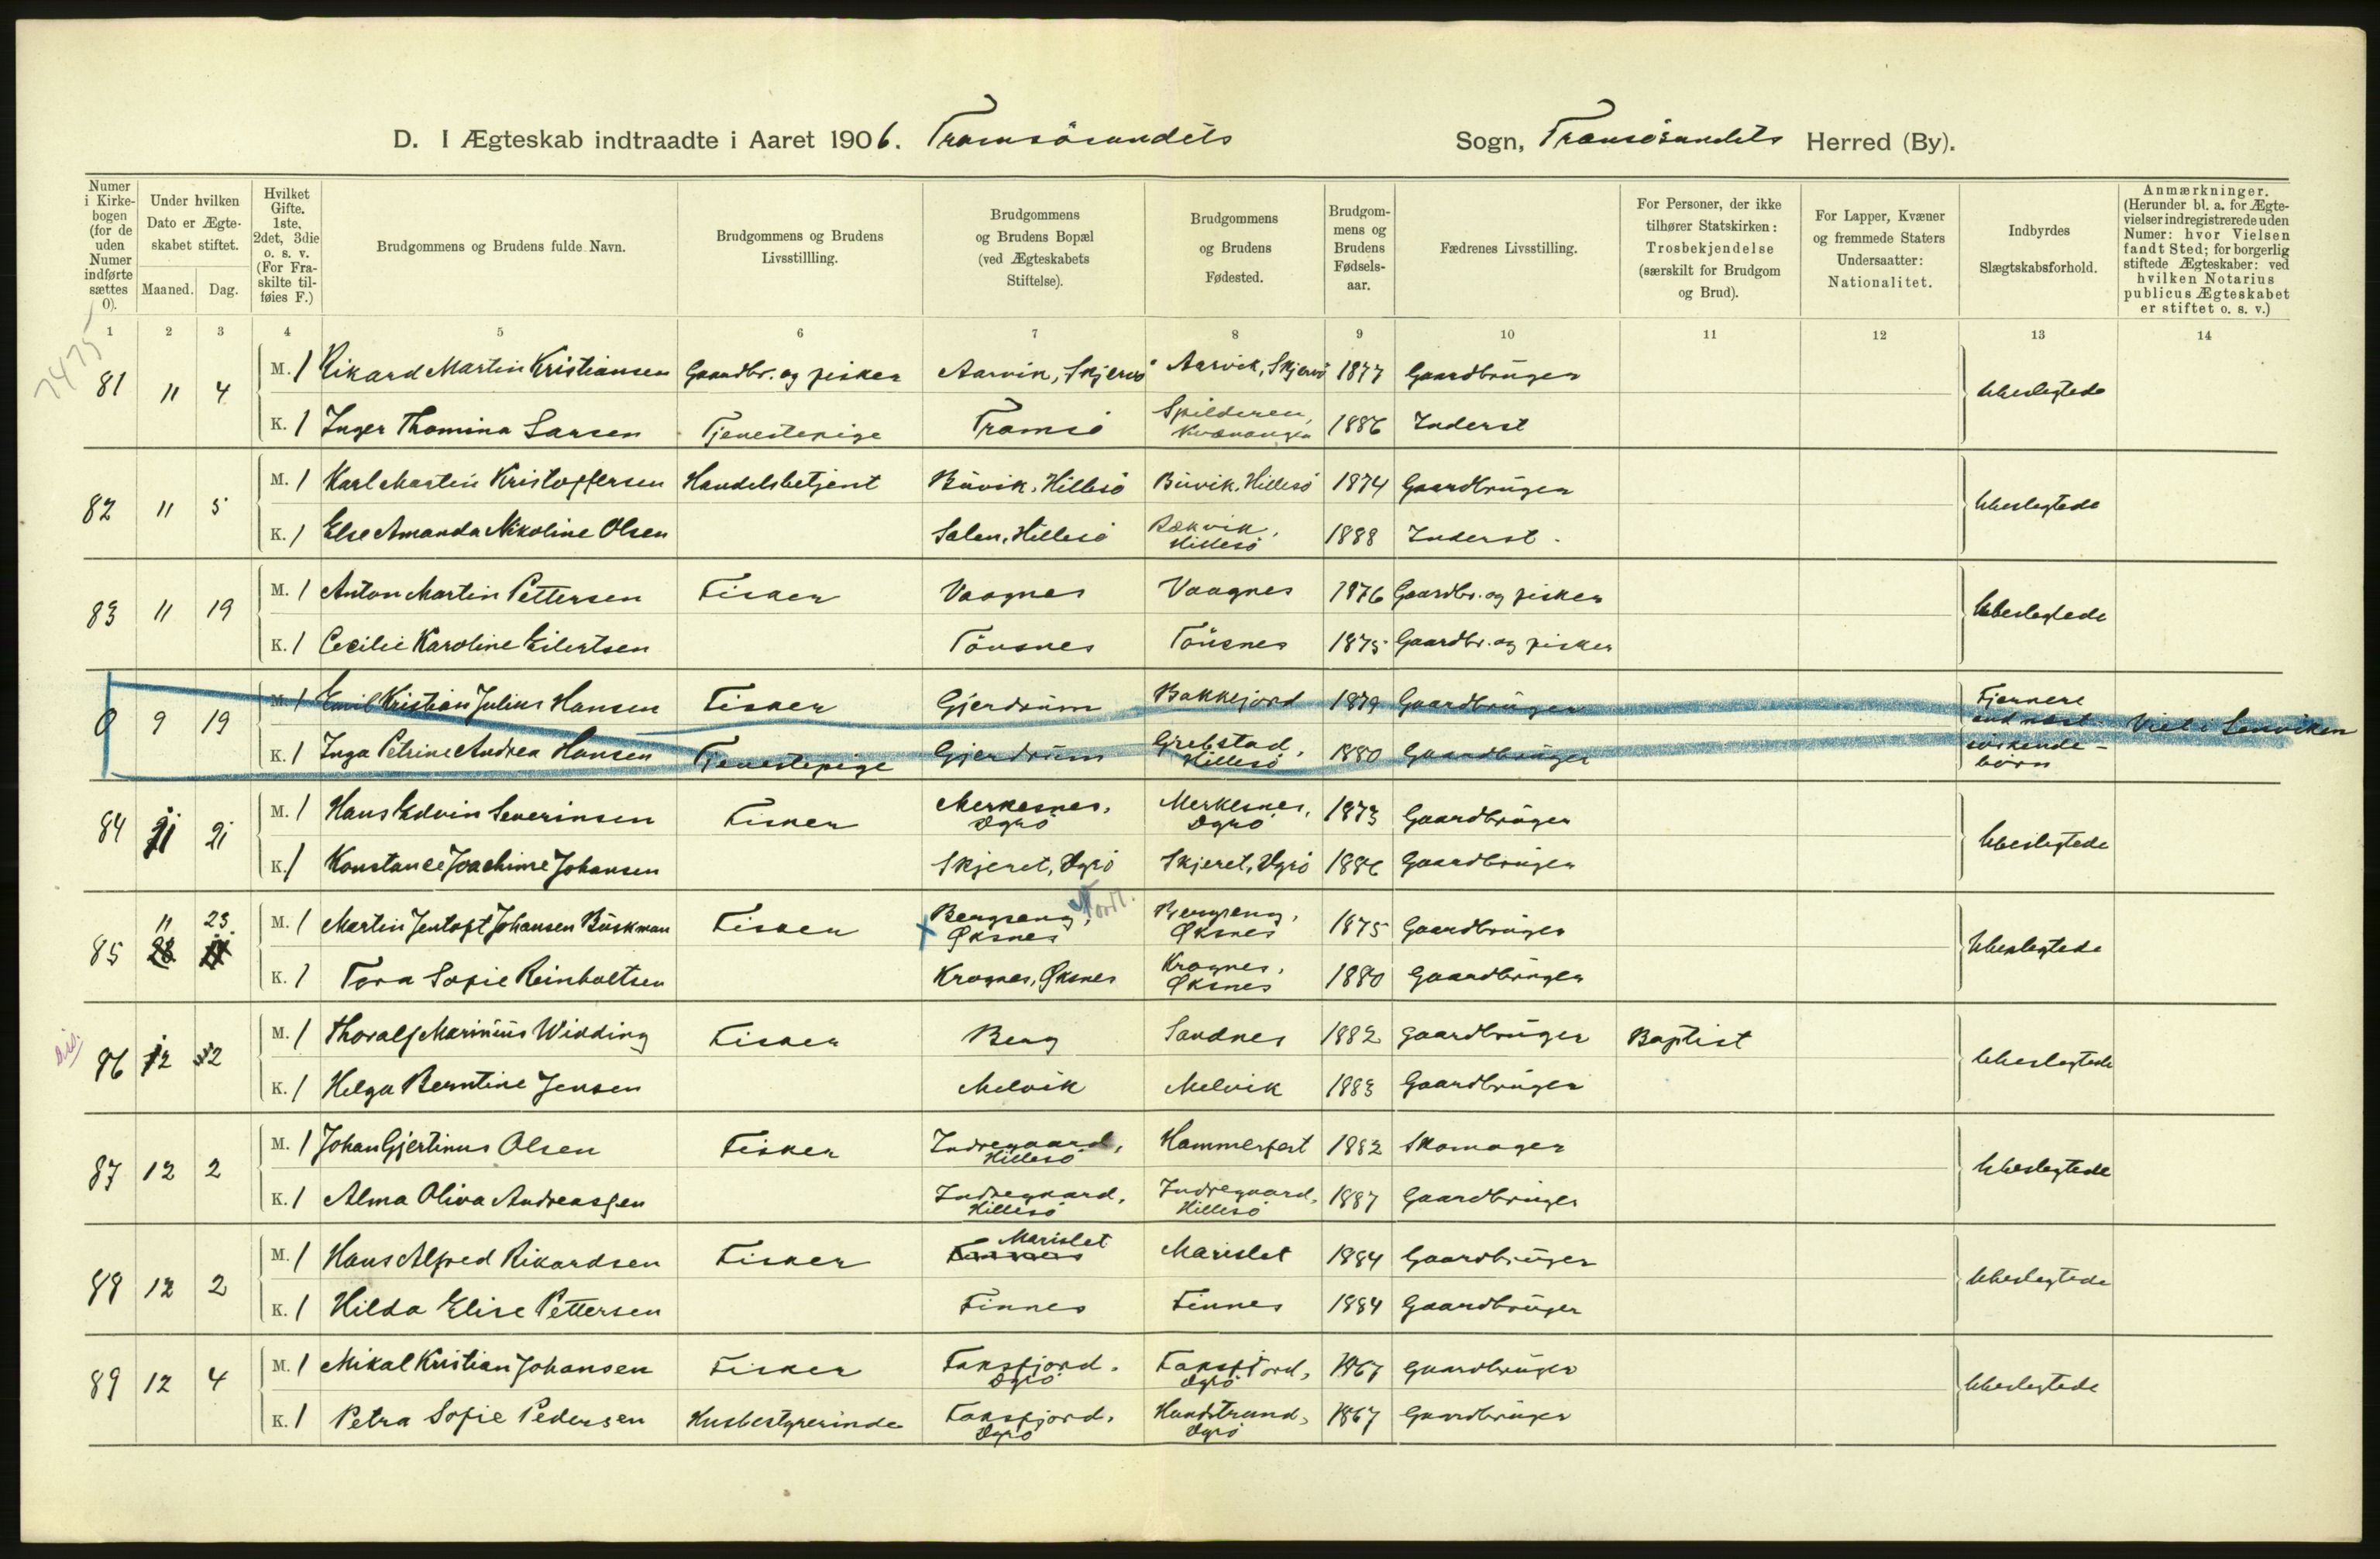 D. I Ægteskab indtraadte i Aaret 1906. Tromsösundets Sogn, Tromsösundets Herred (By).
Numer i Kirkebogen (for de uden Numer indførte sættes 0).
Under hvilken Dato er Ægteskabet stiftet.
Maaned. Dag.
Hvilket Gifte. 1ste, 2det, 3die o. s. v. (For Fraskilte tilføies F.)
Brudgommens og Brudens fulde Navn.
Brudgommens og Brudens Livsstillling.
Brudgommens og Brudens Bopæl (ved Ægteskabets Stiftelse).
Brudgommens og Brudens Fødested.
Brudgommens og Brudens Fødselsaar.
Fædrenes Livsstilling.
For Personer, der ikke tilhører Statskirken: Trosbekjendelse (særskilt for Brudgom og Brud).
For Lapper, Kvæner og fremmede Staters Undersaatter: Nationalitet.
Indbyrdes Slægtskabsforhold.
Anmærkninger. (Herunder bl. a. for Ægtevielser indregistrerede uden Numer: hvor Vielsen fandt Sted; for borgerlig stiftede Ægteskaber: ved hvilken Notarius publicus Ægteskabet er stiftet o. s. v.)
1 2 3 4 5 6 7 8 9 10 11 12 13 14
7475
81 11 4 M. 1 Rikard Martin Kristiansen Gaardbr. og fisker Aarvik, Skjervö Aarvik, Skjervö 1877 Gaardbruger Ubeslegtede
K. 1 Inger Thomina Larsen Tjenestepige Tromsö Spilderen, Kvænangen 1886 Inderst
82 11 5 M. 1 Karl Martin Kristoffersen Handelsbetjent Buvik, Hillesö Buvik, Hillesö 1874 Gaardbruger Ubeslegtede
K. 1 Else Amanda Nikoline Olsen Salen, Hillesö Rækvik, Hillesö 1888 Inderst
83 11 19 M. 1 Anton Martin Pettersen Fisker Vaagnes Vaagnes 1876 Gaardbr. og fisker Ubeslegtede
K. 1 Cecilie Karoline Eilertsen Tönsnes Tönsnes 1875 Gaardbr. og fisker
0 9 19 M. 1 Emil Kristian Julius Hansen Fisker Gjerdrum Bakkejord 1879 Gaardbruger Fjernere end næst söskendebörn Viet i Lenviken
K. 1 Inga Petrine Andrea Hansen Tjenestepige Gjerdrum Grebstad, Hillesö 1880 Gaardbruger
84 11 21 M. 1 Hans Edvin Severinsen Fisker Merkesnes, Dyrö Merkesnes, Dyrö 1873 Gaardbruger Ubeslegtede
K. 1 Konstance Joachime Johansen Skjeret, Dyrö Skjeret, Dyrö 1886 Gaardbruger
85 11 23 M. 1 Martin Jentoft Johansen Buskman Fisker X Bergseng, Øksnes Nordl. Bergseng, Øksnes 1875 Gaardbruger Ubeslegtede
K. 1 Tora Sofie Reinholtsen Krognes, Øksnes Krognes, Øksnes 1880 Gaardbruger
86 12 2 M. 1 Thoralf Marinius Widding Fisker Berg Sandnes 1882 Gaardbruger Baptist Ubeslegtede
K. 1 Helga Berntine Jensen Melvik Melvik 1883 Gaardbruger
87 12 2 M. 1 Johan Gjertinus Olsen Fisker Indregaard, Hillesö Hammerfest 1882 Skomager Ubeslegtede
K. 1 Alma Oliva Andreassen Indregaard, Hillesö Indregaard, Hillesö 1887 Gaardbruger
88 12 2 M. 1 Hans Alfred Rikardsen Fisker Marislet Marislet 1884 Gaardbruger Ubeslegtede
K. 1 Hilda Elise Pettersen Finnes Finnes 1884 Gaardbruger
89 12 4 M. 1 Mikal Kristian Johansen Fisker Faksfjord, Dyrö Faksfjord, Dyrö 1867 Gaardbruger Ubeslegtede
K. 1 Petra Sofie Pedersen Husbestyrerinde Faksfjord, Dyrö Hundstrand, Dyrö 1867 Gaardbruger